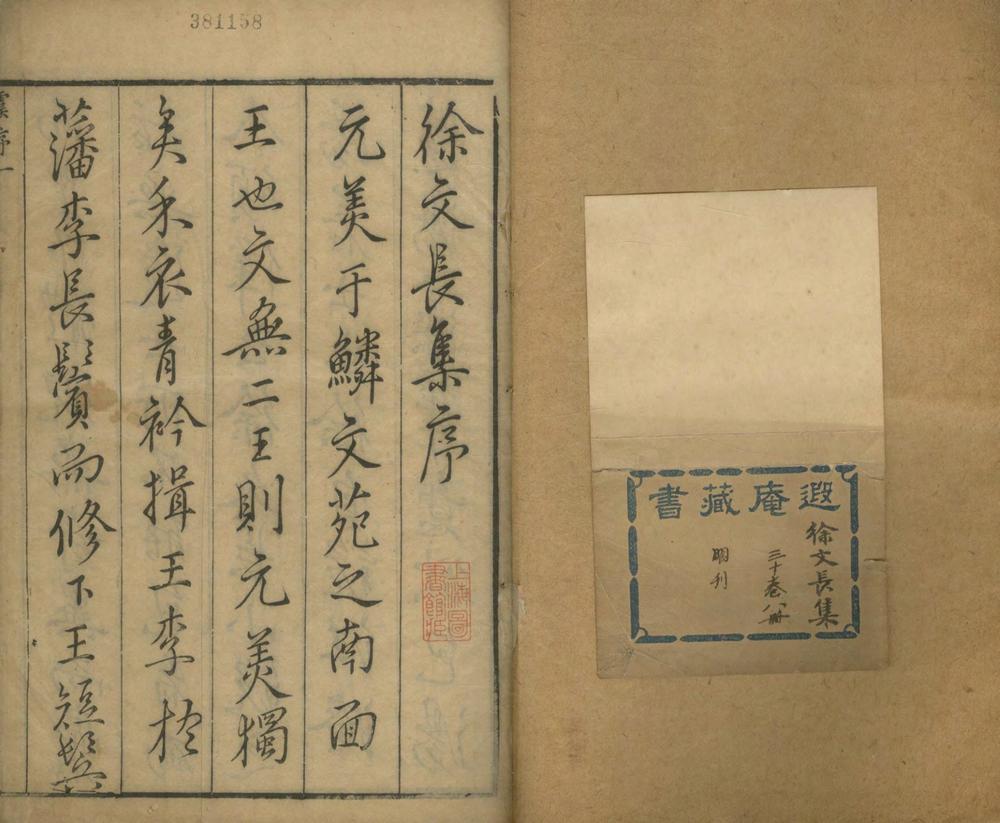 遐庵藏書
徐文長集
三十卷八冊
明刊
381158
徐文長集序
元美于鱗文苑之南面
王也文無二王則元美獨
矣禾衣青衿揖王李於
藩李長鬢而修下王短鬢
虞序一
上海圖
書館藏